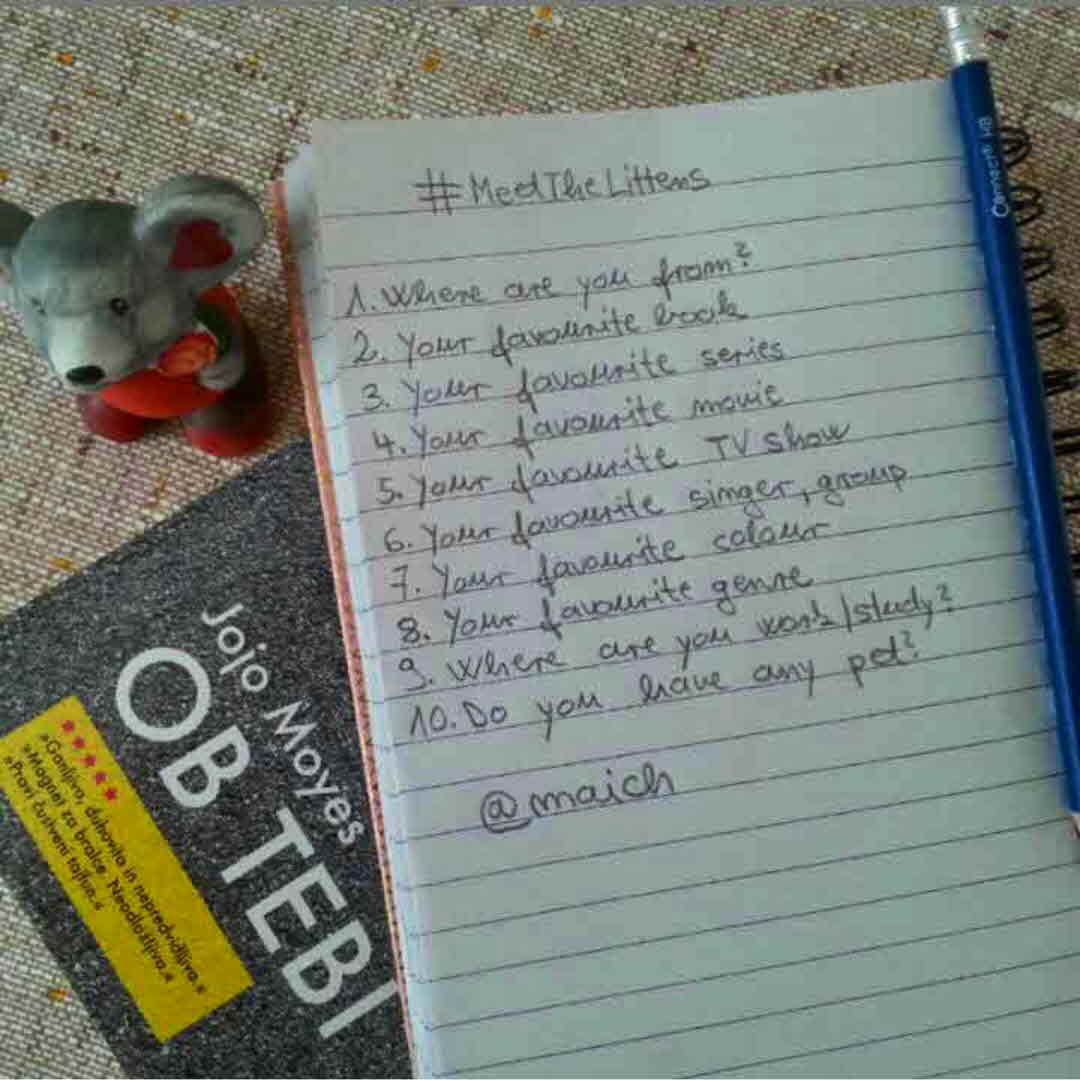 #MeetTheLittens
1. Where are you from?
2. Your favourite book
3. Your favourite series
4. Your favourite movie
5. Your favourite TV show
6. Your favourite singer, group
7. Your favourite colour
8. Your favourite genre
9. Where are you work/study?
10. Do you have any pet?
@maich
Connect® HB
Jojo Moyes
OB TEBI
»Ganljivo, duhovito in nepredvidljivo.«
»Magnet za bralce. Neodložljivo.«
»Pravi čustveni tajfun.«